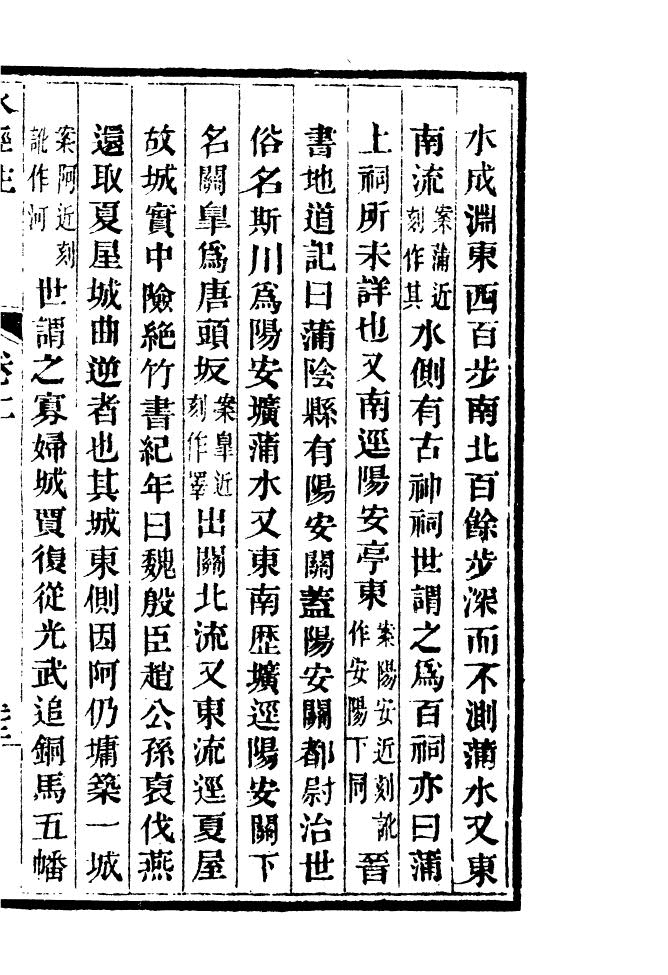 水成淵東西百步南北百餘步深而不測蒲水又東
南流案蒲近刻作其水側有古神祠世謂之爲百祠亦曰蒲
上祠所未詳也又南逕陽安亭東案陽安近刻訛作安陽下同晉
書地道記曰蒲陰縣有陽安關蓋陽安關都尉治世
俗名斯川爲陽安壙蒲水又東南歷壙逕陽安關下
名關臯爲唐頭坂案臯近刻作睪出關北流又東流逕夏屋
故城實中險絶竹書紀年曰魏殷臣趙公孫裒伐燕
還取夏屋城曲逆者也其城東側因阿仍墉築一城
案阿近刻訛作河世謂之寡婦城賈復從光武追銅馬五幡
水經注 卷十一